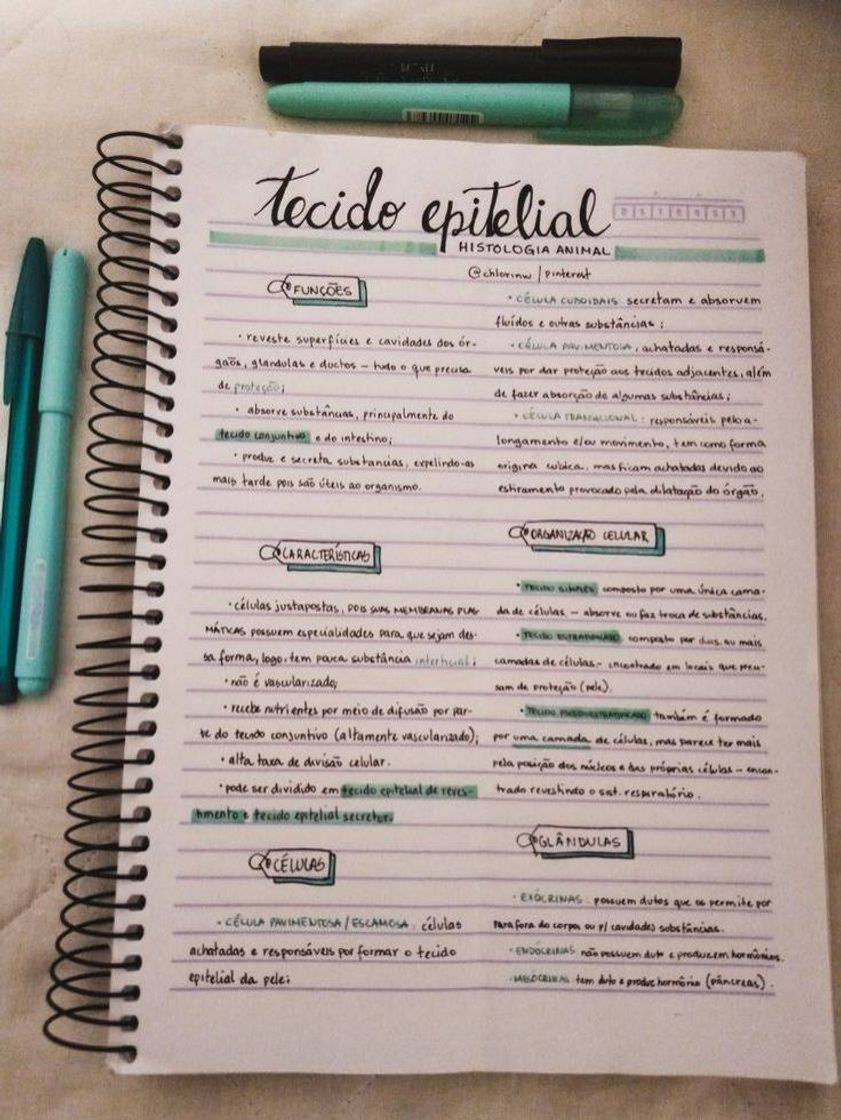 tecido epitelial
D S T Q Q S S
HISTOLOGIA ANIMAL
@chlorinw / pinterest
FUNÇÕES
• reveste superfícies e cavidades dos ór-
gãos, glandulas e ductos – tudo o que precisa
de proteção;
• absorve substâncias, principalmente do
tecido conjuntivo e do intestino;
• produz e secreta substancias, expelindo-as
mais tarde pois são úteis ao organismo.
CARACTERÍSTICAS
• células justapostas, POIS SUAS MEMBRANAS PLAS
MÁTICAS possuem especialidades para que sejam des-
sa forma, logo, tem pouca substância intersticial;
• não é vascularizado;
• recebe nutrientes por meio de difusão por par-
te do tecido conjuntivo (altamente vascularizado);
• alta taxa de divisão celular.
• pode ser dividido em tecido epitelial de reves-
timento e tecido epitelial secretor.
CÉLULAS
• CÉLULA PAVIMENTOSA / ESCAMOSA: células
achatadas e responsáveis por formar o tecido
epitelial da pele;
• CÉLULA CUBOIDAIS secretam e absorvem
fluídos e outras substâncias;
• CÉLULA PAVIMENTOSA, achatadas e responsá-
veis por dar proteção aos tecidos adjacentes, além
de fazer absorção de algumas substâncias;
• CÉLULA TRANSICIONAL: responsáveis pelo a-
longamento e/ou movimento, tem como forma
origina cubica, mas ficam achatadas devido ao
estiramento provocado pela dilatação do órgão.
ORGANIZAÇÃO CELULAR
• TECIDO SIMPLES composto por uma única cama-
da de células – absorve ou faz troca de substâncias.
• TECIDO ESTRATIFICADO composto por duas ou mais
camadas de células - encontrado em locais que preci-
sam de proteção (pele).
• TECIDO PSEUDOESTRATIFICADO também é formado
por uma camada de células, mas parece ter mais
pela posição dos núcleos e das próprias células – encon-
trado revestindo o sist. respiratório.
GLÂNDULAS
• EXÓCRINAS possuem dutos que os permite por
para fora do corpo ou p/ cavidades substâncias.
• ENDÓCRINAS não possuem duto e produzem hormônios.
• MESÓCRINAS tem duto e produz hormônio (pâncreas).